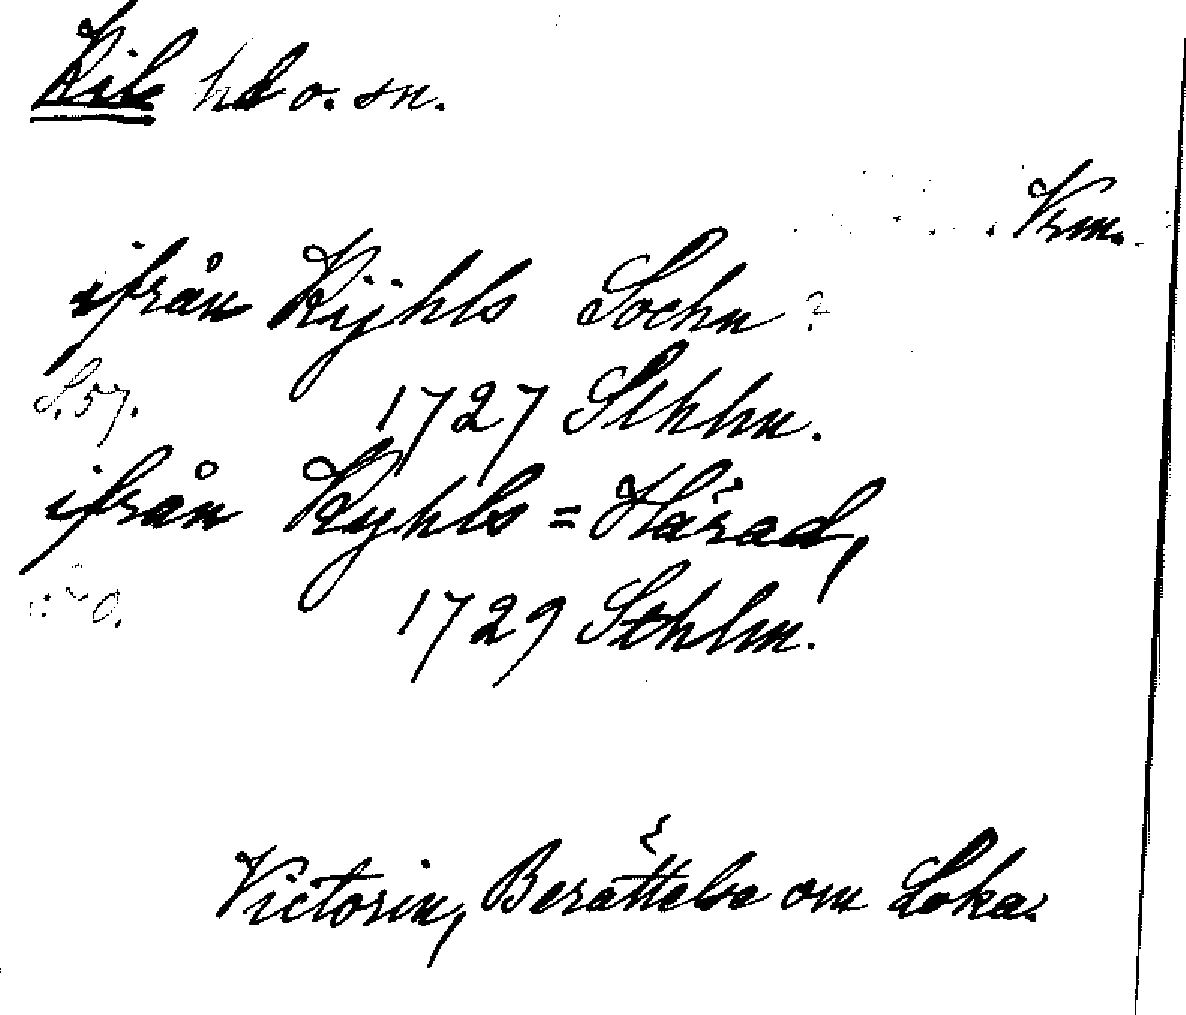 Kil hd o. sn.
Vrm.
ifrån Kijhls Sochn ?
S. 57. 1727 Sthlm.
ifrån Kyhls = Härad,
0. 1729 Sthlm.
Victorin, Berättelse om Loka.